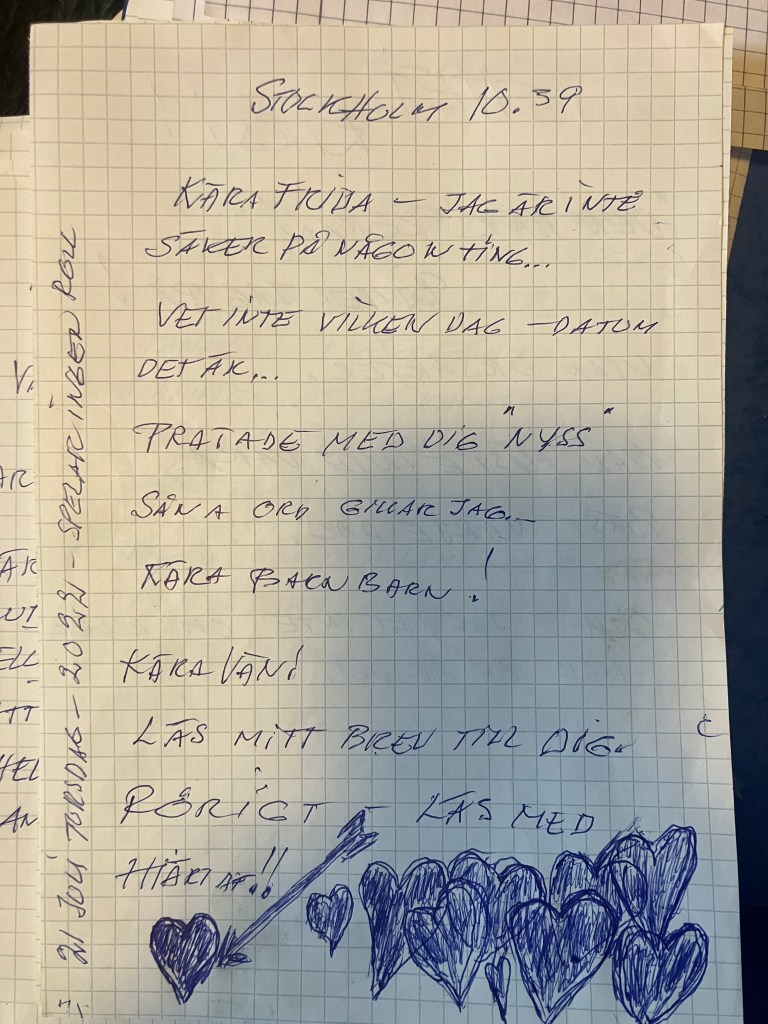 STOCKHOLM 10.39
KÄRA FRIDA – JAG ÄR INTE
SÄKER PÅ NÅGONTING...
VET INTE VILKEN DAG – DATUM
DET ÄR...
PRATADE MED DIG "NYSS"
SÅNA ORD GILLAR JAG...
KÄRA BARNBARN!
KÄRA VÄN!
LÄS MITT BREV TILL DIG.
RÖRIGT – LÄS MED
HJÄRTAT!!
21 JULI TORSDAG – 2022 – SPELAR INGEN ROLL
V.
AR
ÄR
ELL
TT
HEL
AN